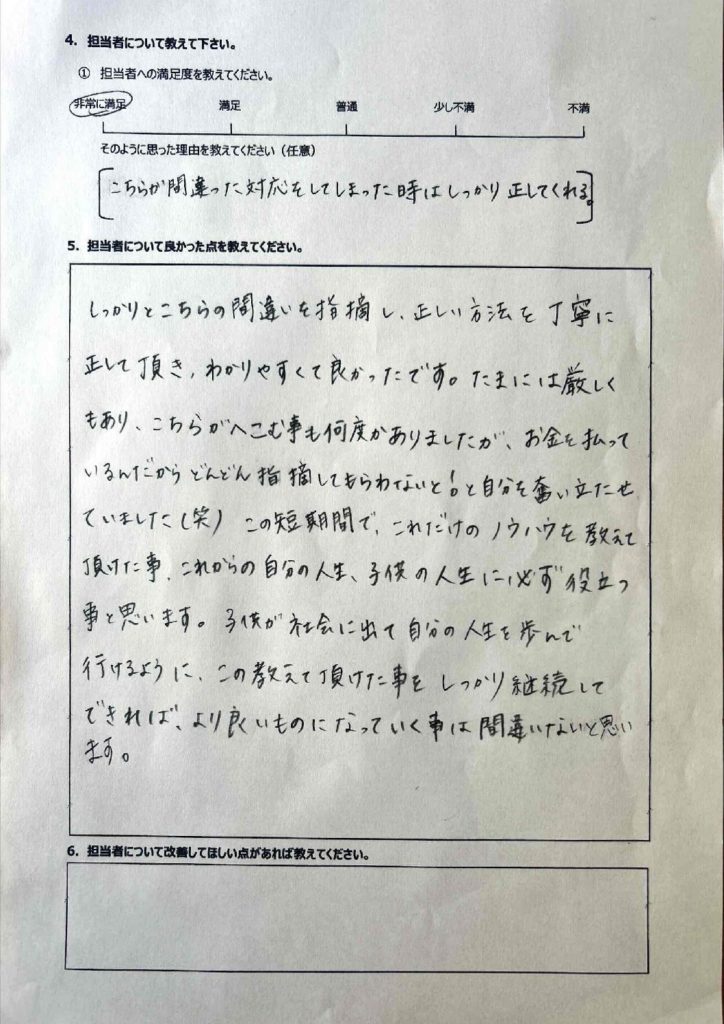 4. 担当者について教えて下さい。
① 担当者への満足度を教えてください。
非常に満足 満足 普通 少し不満 不満
そのように思った理由を教えてください（任意）
こちらが間違った対応をしてしまった時はしっかり正してくれる。
5. 担当者について良かった点を教えてください。
しっかりとこちらの間違いを指摘し、正しい方法を丁寧に
正して頂き、わかりやすくて良かったです。たまには厳しく
もあり、こちらがへこむ事も何度かありましたが、お金を払って
いるんだからどんどん指摘してもらわないと！と自分を奮い立たせ
ていました(笑) この短期間で、これだけのノウハウを教えて
頂けた事、これからの自分の人生、子供の人生に必ず役立つ
事と思います。子供が社会に出て自分の人生を歩んで
行けるように、この教えて頂けた事をしっかり継続して
できれば、より良いものになっていく事は間違いないと思い
ます。
6. 担当者について改善してほしい点があれば教えてください。